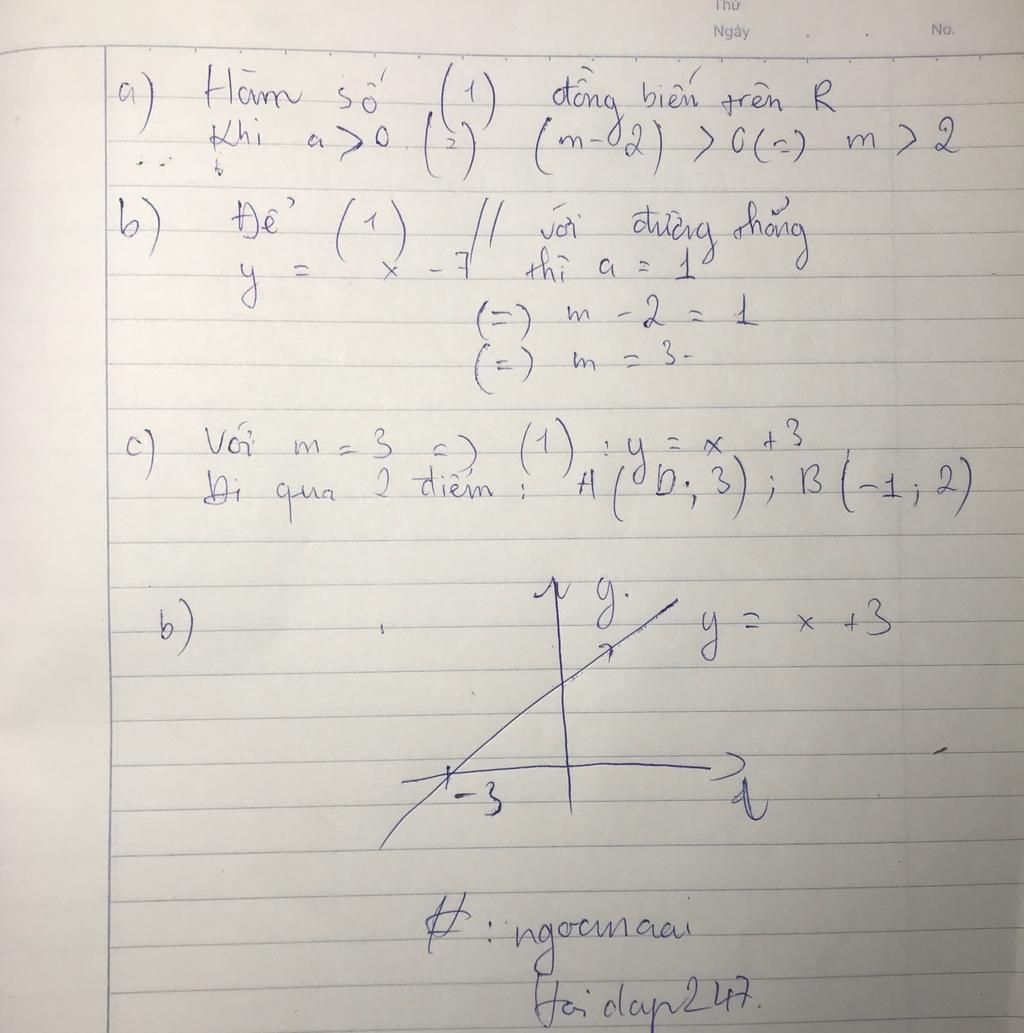 Thứ
Ngày . . No.
a) Hàm số (1) đồng biến trên R
Khi a > 0 (=) (m-2) > 0 (=) m > 2
b) Để (1) // với đường thẳng
y = x - 7 thì a = 1
(=) m - 2 = 1
(=) m = 3-
c) Với m = 3 =) (1) : y = x +3
Đi qua 2 điểm : A(0; 3) ; B(-1; 2)
b) y. y = x +3
-3
#: ngocmaai
Hoidap247.